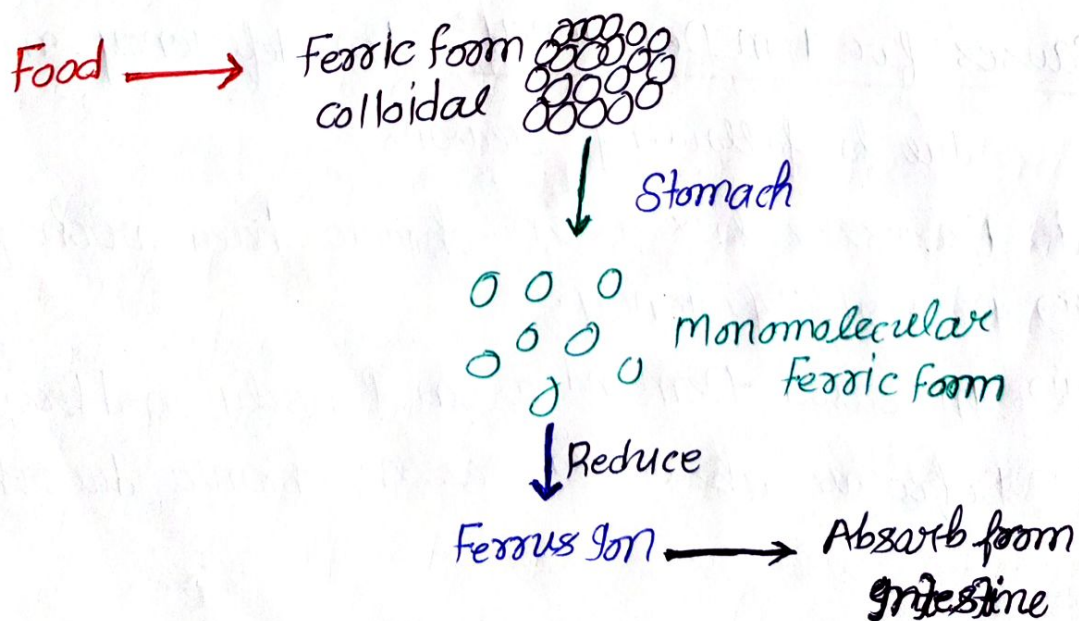 Food
Ferric form
colloidal
Stomach
Monomolecular
Ferric Form
Reduce
Ferrus Ion
Absarb from
Intestine